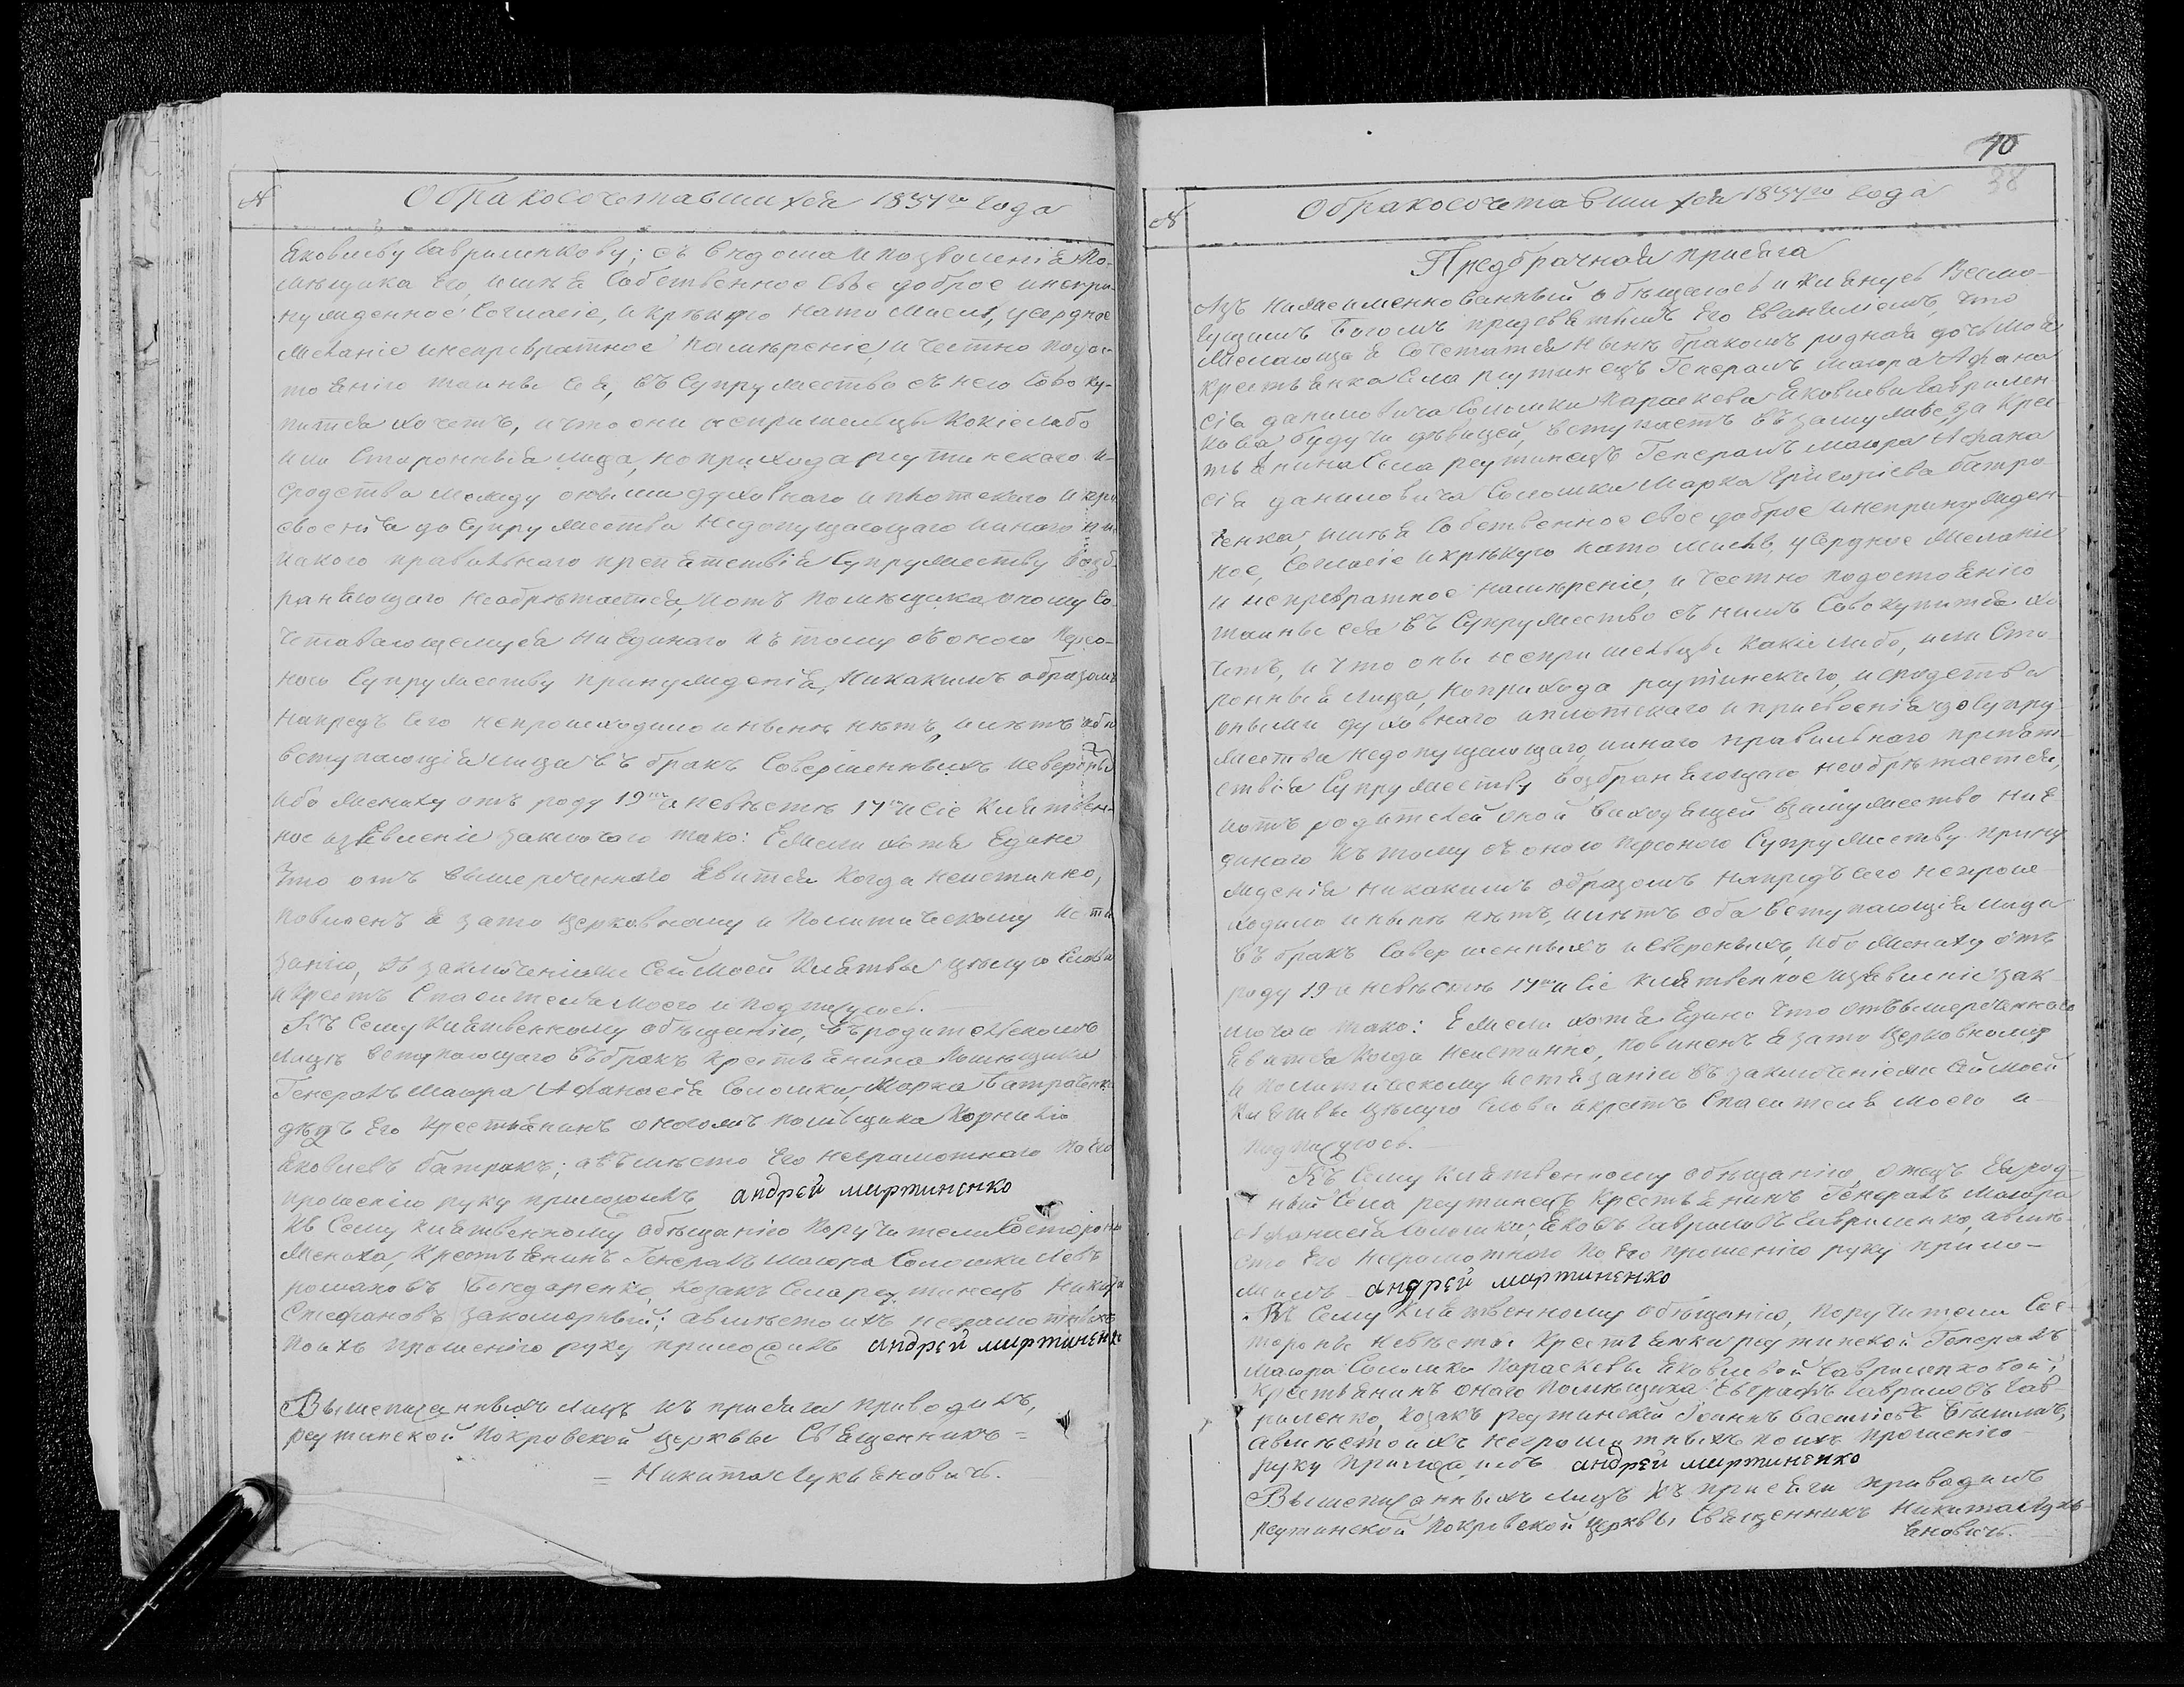 №
О бракосочетавшихся 1837го года
Яковлеву Гавриленкову; съ ведома и позволенія По-
мѣщика его, имѣя собственное свое доброе и непри-
нужденное согласіе, и крѣпкую на то мысль, усердное
желаніе и непревратное намѣреніе, и честно по дос-
тоянію тайны сея, въ супружество съ нею совоку-
питися хочетъ, и что они не пришельцы кокіе либо
или сторонныя лица, но прихода реутинскаго и
сродства между оными духовнаго и плотскаго и при
своенія до супружества недопущающаго инаго ни
какого правильнаго препятствія супружеству возб
раняющаго необрѣтается, и отъ помѣщика оному со-
четавающемуся ни единаго къ тому съ оною персо-
ною супружеству принужденія, никакимъ образомъ
напредъ сего непроисходило и нынѣ нѣтъ, имѣтъ оба
вступающія лица въ бракъ совершенныхъ и сверсныхъ
ибо жениху отъ роду 19ть а невѣстѣ 17ть и сіе клятвен-
ное изъявленіе заключаю тако: Ежели хотя едино
что отъ вышереченнаго явится когда неистинно,
повиненъ я за то церковному и политическому истя
занію, въ заключеніе же сей моей клятвы цѣлую слова
и крестъ Спасителя моего и подпишуюсь.
Къ сему клятвенному обѣщанію, въ родительскомъ
лицѣ вступающаго въ бракъ крестьянина помѣщика
Генералъ маіора Афанасія Соломки, Марка Батраченка
дядъ его крестьянинъ оного жъ помѣщика Корнилій
Яковлевъ Батракъ; а въмѣсто его неграмотнаго по его
прошенію руку приложилъ андрей мартиненко
къ сему клятвенному обѣщанію поручители со стороны
жениха, крестьянинъ Генералъ маіора Соломки Левъ
романовъ Бондаренко, козакъ села реутинецъ Никифъ
Стефановъ Закоморный; авмѣсто ихъ неграмотныхъ
по ихъ прошенію руку приложилъ андрей мартиненко
Вышеписанныхъ лицъ къ присяги приводилъ,
реутинской покровской церквы Священникъ =
= Никита Лукьяновичъ.
40
38
№
О бракосочетавшихся 1837го года
Предбрачная присяга
Азъ нижеименнованный обѣщаюсь и клянусь Всемо-
гущимъ Богомъ предъ святымъ его Евангеліемъ, что
желающая сочетатся нынѣ бракомъ родная дочь моя
крестьянка села реутинецъ Генералъ маіора Афана
сія даниловича Соломки Параскева Яковлева Гаврилен
кова будучи дѣвицей, вступаетъ въ замужье, за крес
тьянина села реутинецъ Генералъ маіора Афана
сія даниловича Соломки Марка Григоріева Батра-
ченка, имѣя собственное свое доброе и непринужден-
ное, согласіе и крѣпкую на то мысль, усердное желаніе
и непревратное намѣреніе, и честно по достоянію
тайны сея въ супружество съ нимъ совокупитися хо
четъ, и что оны не пришельцы какіе либо, или сто
ронныя лица, но прихода реутинскаго, и сродства
оными духовнаго и плотскаго и присвоенія до супру-
жества недопущающаго, инаго правильнаго препят-
ствія супружеству возбраняющаго необрѣтается,
и отъ родителей оной входящей взамужество ни е
динаго къ тому съ оною персоною супружеству прину
жденія никакимъ образомъ напредъ сего непроис
ходило и нынѣ нѣтъ, имѣтъ оба вступающія лица
въ бракъ совершенныхъ и сверсныхъ, ибо жениху отъ
роду 19 а невѣстѣ 17ть и сіе клятвенное изъявленіе зак
лючаю тако: Ежели хотя едино что отъ вышереченнаго
явится когда неистинно, повиненъ я за то церковному
и политическому истязанію въ заключеніе же сей моей
клятвы цѣлую слова и крестъ Спасителя моего и
подпишуюсь.
Къ сему клятвенному обѣщанію, отецъ ея род-
ный села реутинецъ крестьянинъ Генералъ маіора
Афанасія Соломки; Яковъ Гавриловъ Гавриленко, авмѣ-
сто его неграмотнаго по его прошенію руку прило-
жилъ андрей мартиненко
Къ сему клятвенному обѣщанію, поручители сос-
тороны невѣсты крестьянки реутинской Генералъ
маіора Соломки Параскевы Яковлевой Гавриленковой;
крестьянинъ оного помѣщика Евграфъ Гавриловъ Гав-
риленко, козакъ реутинскій Іоаннъ Василіевъ
авмѣсто ихъ неграмотныхъ по ихъ прошенію
руку приложилъ андрей мартиненко
Вышеписанныхъ лицъ къ присяги приводилъ
реутинской покровской церквы Священникъ Никита Лукь-
яновичъ.